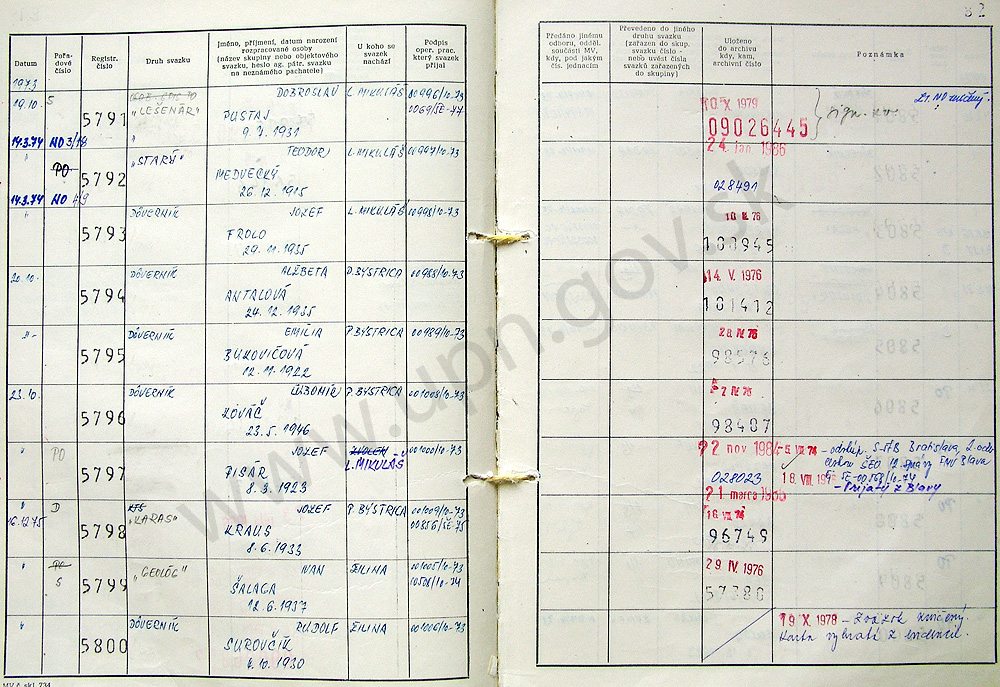 Datum
Pořa-
dové
číslo
Registr.
číslo
Druh svazku
Jméno, příjmení, datum narození
rozpracované osoby
(název skupiny nebo objektového
svazku, heslo ag. pátr. svazku
na neznámého pachatele)
U koho se
svazek
nachází
Podpis
oper. prac.
který svazek
přijal
Předáno jinému
odboru, odděl.
součásti MV,
kdy, pod jakým
čís. jednacím
Převedeno do jiného
druhu svazku
(zařazen do skup.
svazku číslo -
nebo uvést čísla
svazků zařazených
do skupiny)
Uloženo
do archivu
kdy, kam,
archivní číslo
Poznámka
1973
19.10. S 5791 "LEŠENÁR" DOBROSLAV L. MIKULÁŠ 00996/10-73
PUSTAJ
9.7.1931
10 X 1979
09026445
14.3.74 NO 3/18
PO 5792 "STARÝ" TEODOR L. MIKULÁŠ 00997/10-73
MEDVECKÝ
26.12.1915
24 jan 1986
028491
14.3.74 NO 4/9
" 5793 DÔVERNÍK JOZEF L. MIKULÁŠ 00998/10-73
FROLO
29.11.1935
100945
20.10. 5794 DÔVERNÍK ALŽBETA P. BYSTRICA 00988/10-73
ANTALOVÁ
24.12.1955
14. V. 1976
101412
-"- 5795 DÔVERNÍK EMILIA P. BYSTRICA 00989/10-73
BUKOVIČOVÁ
12.11.1922
28. IV 76
98576
23.10. 5796 DÔVERNÍK ĽUBOMÍR P. BYSTRICA 001008/10-73
KOVÁČ
23.5.1946
IV 76
98407
" PO 5797 JOZEF ZVOLEN L. MIKULÁŠ 001000/10-73
PISÁR
8.3.1923
22 nov 1984
028023
- odstúp. S-ŠtB Bratislava, 2. odd.
- Prijatý z Blavy
" D 5798 KTS "KARAS" JOZEF P. BYSTRICA 001009/10-73
16.12.75
KRAUS
8.6.1933
21 marca
96749
" PO S 5799 "GEOLÓG" IVAN ŽILINA 001005/10-73
ŠALAGA
12.6.1937
29. IV. 1976
57380
" 5800 DÔVERNÍK RUDOLF ŽILINA 001006/10-73
SUROVČÍK
4.10.1930
19 X 1978 - Zväzok zničený.
Karta vybratá z evidencie.
www.upn.gov.sk